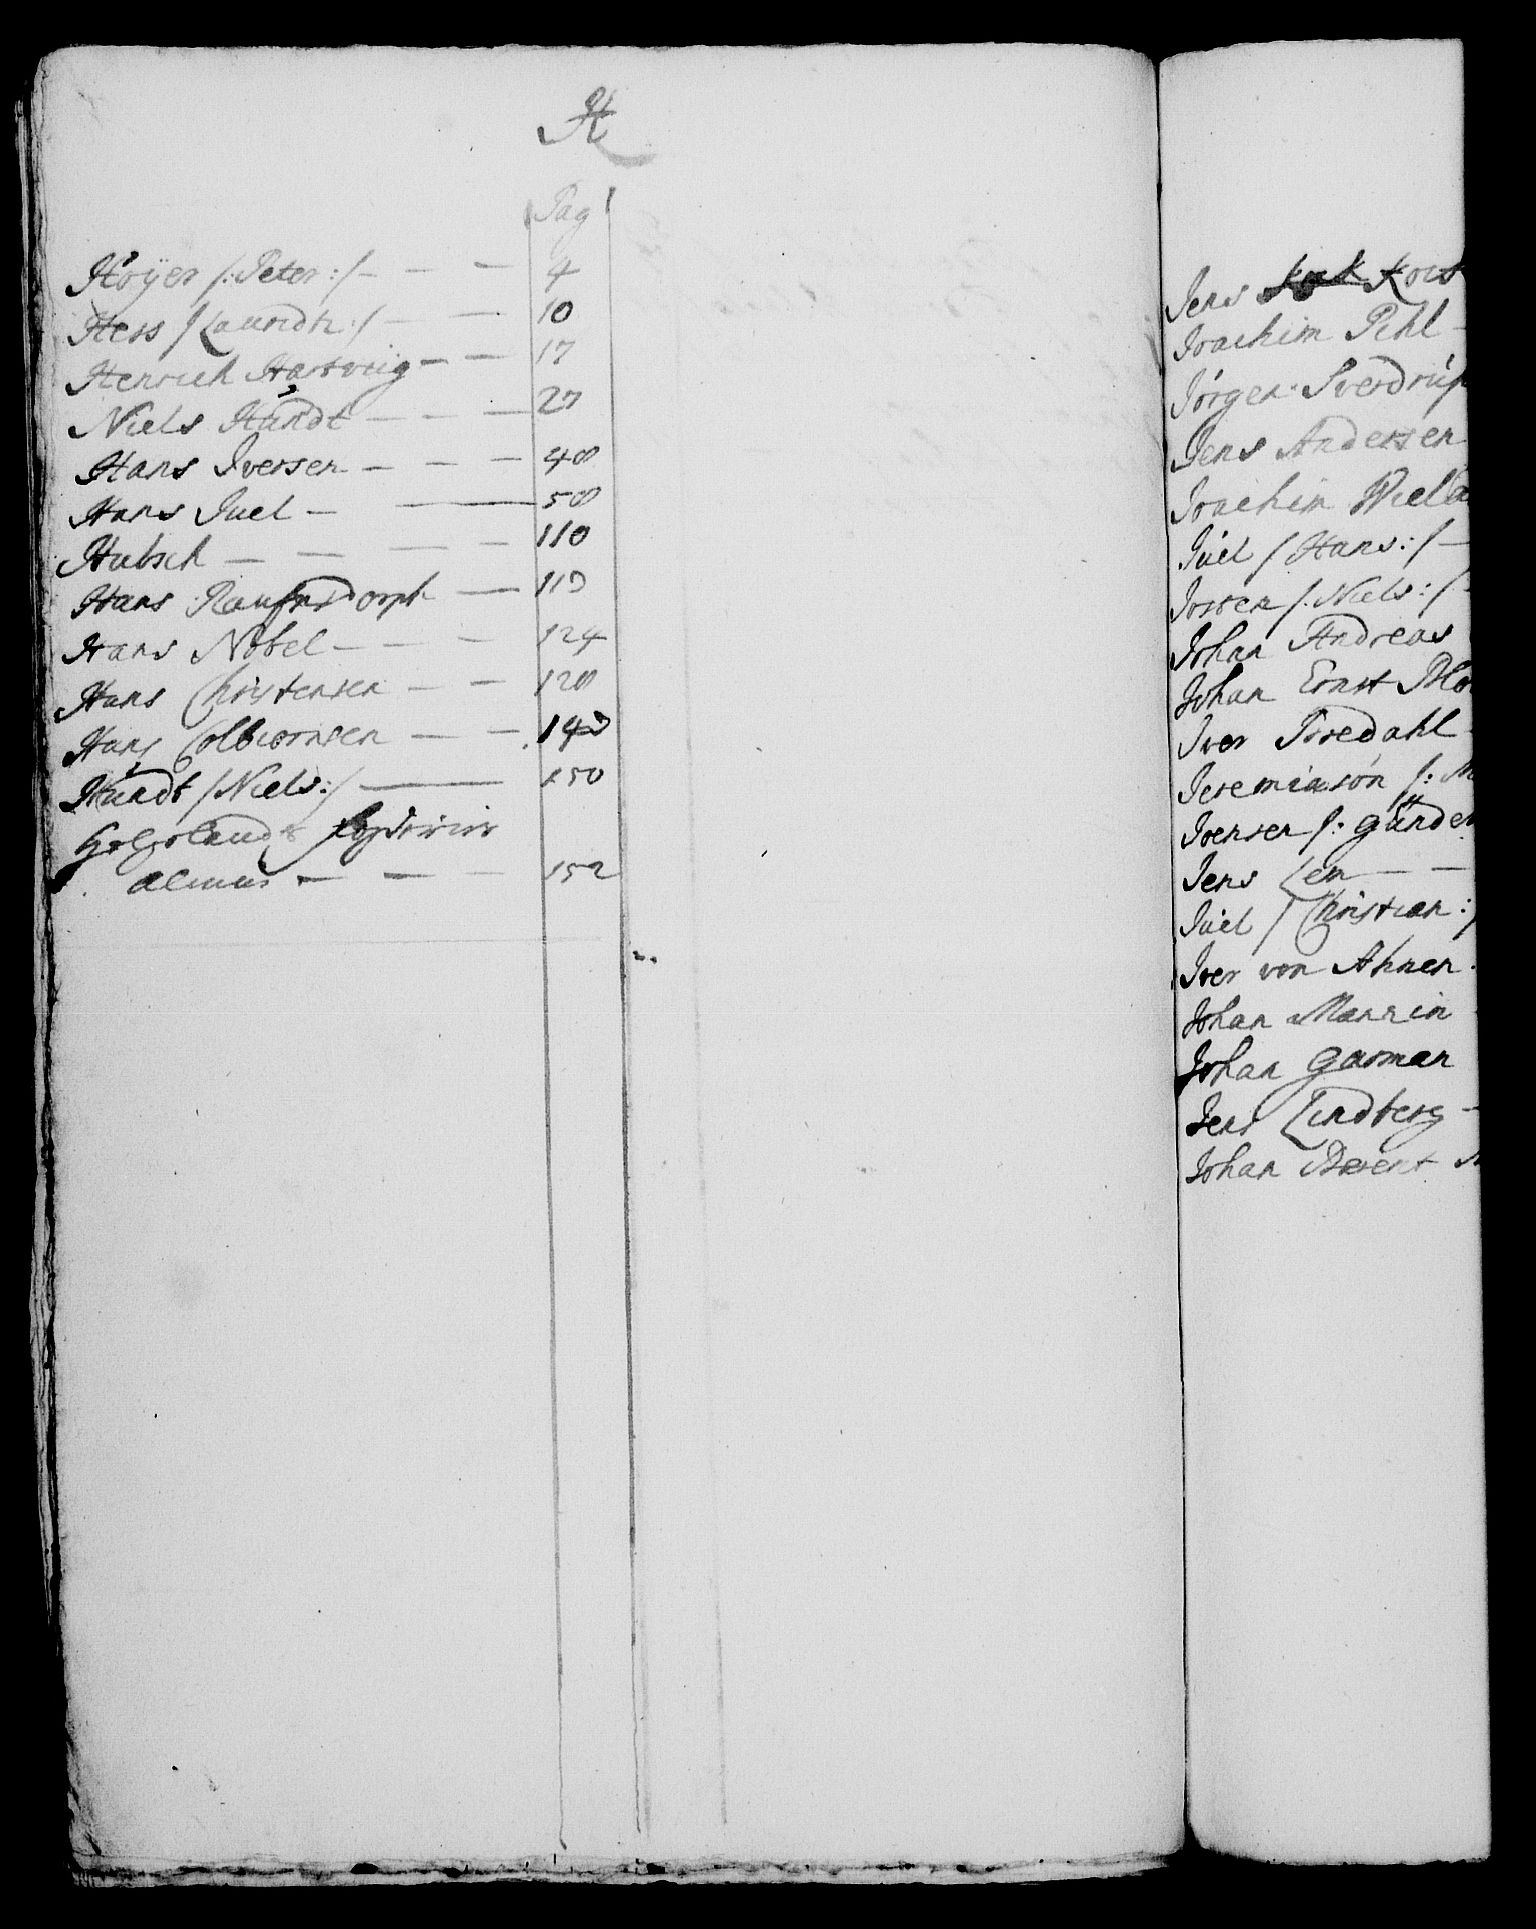 H
Pag
Höÿer /: Peter :/ - - - 4
Hess / Lauridtz :/ - - 10
Henrich Hartvig - - 17
Niels Hündt - - - 27
Hans Iversen - - - 48
Hans Juel - - 58
Hubsch - - - - 110
Hans Rantzndorph - 113
Hans Nobel - - - 124
Hans Christensen - - 128
Hans Colbiörnsen - - 143
Hündt / Niels :/ - 150
Helgelands
almue - - - 152
Jens Kors
Joachim Pihl -
Jörgen Sverdrup
Jens Andersen
Joachim
Juel / Hans :/ -
Jossen /: Niels :/ -
Johan Andreas
Johan Ernst
Iver Tredahl -
Jeremiasön /:
Ivensen /: Günder
Jens Lem - -
Juel / Christian :/
Iver von Ahnen -
Johan Manzin -
Johan Garman
Jens Lindberg -
Johan Berent